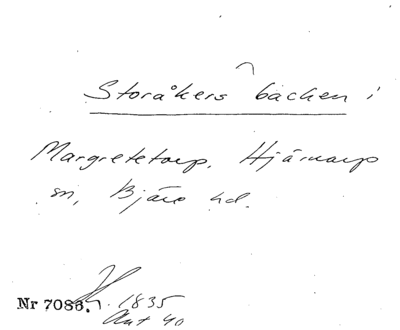 Storåkers backen i
Margretetorp, Hjärnarp
sn, Bjäre hd.
Nr 7086. 1835
Akt 40